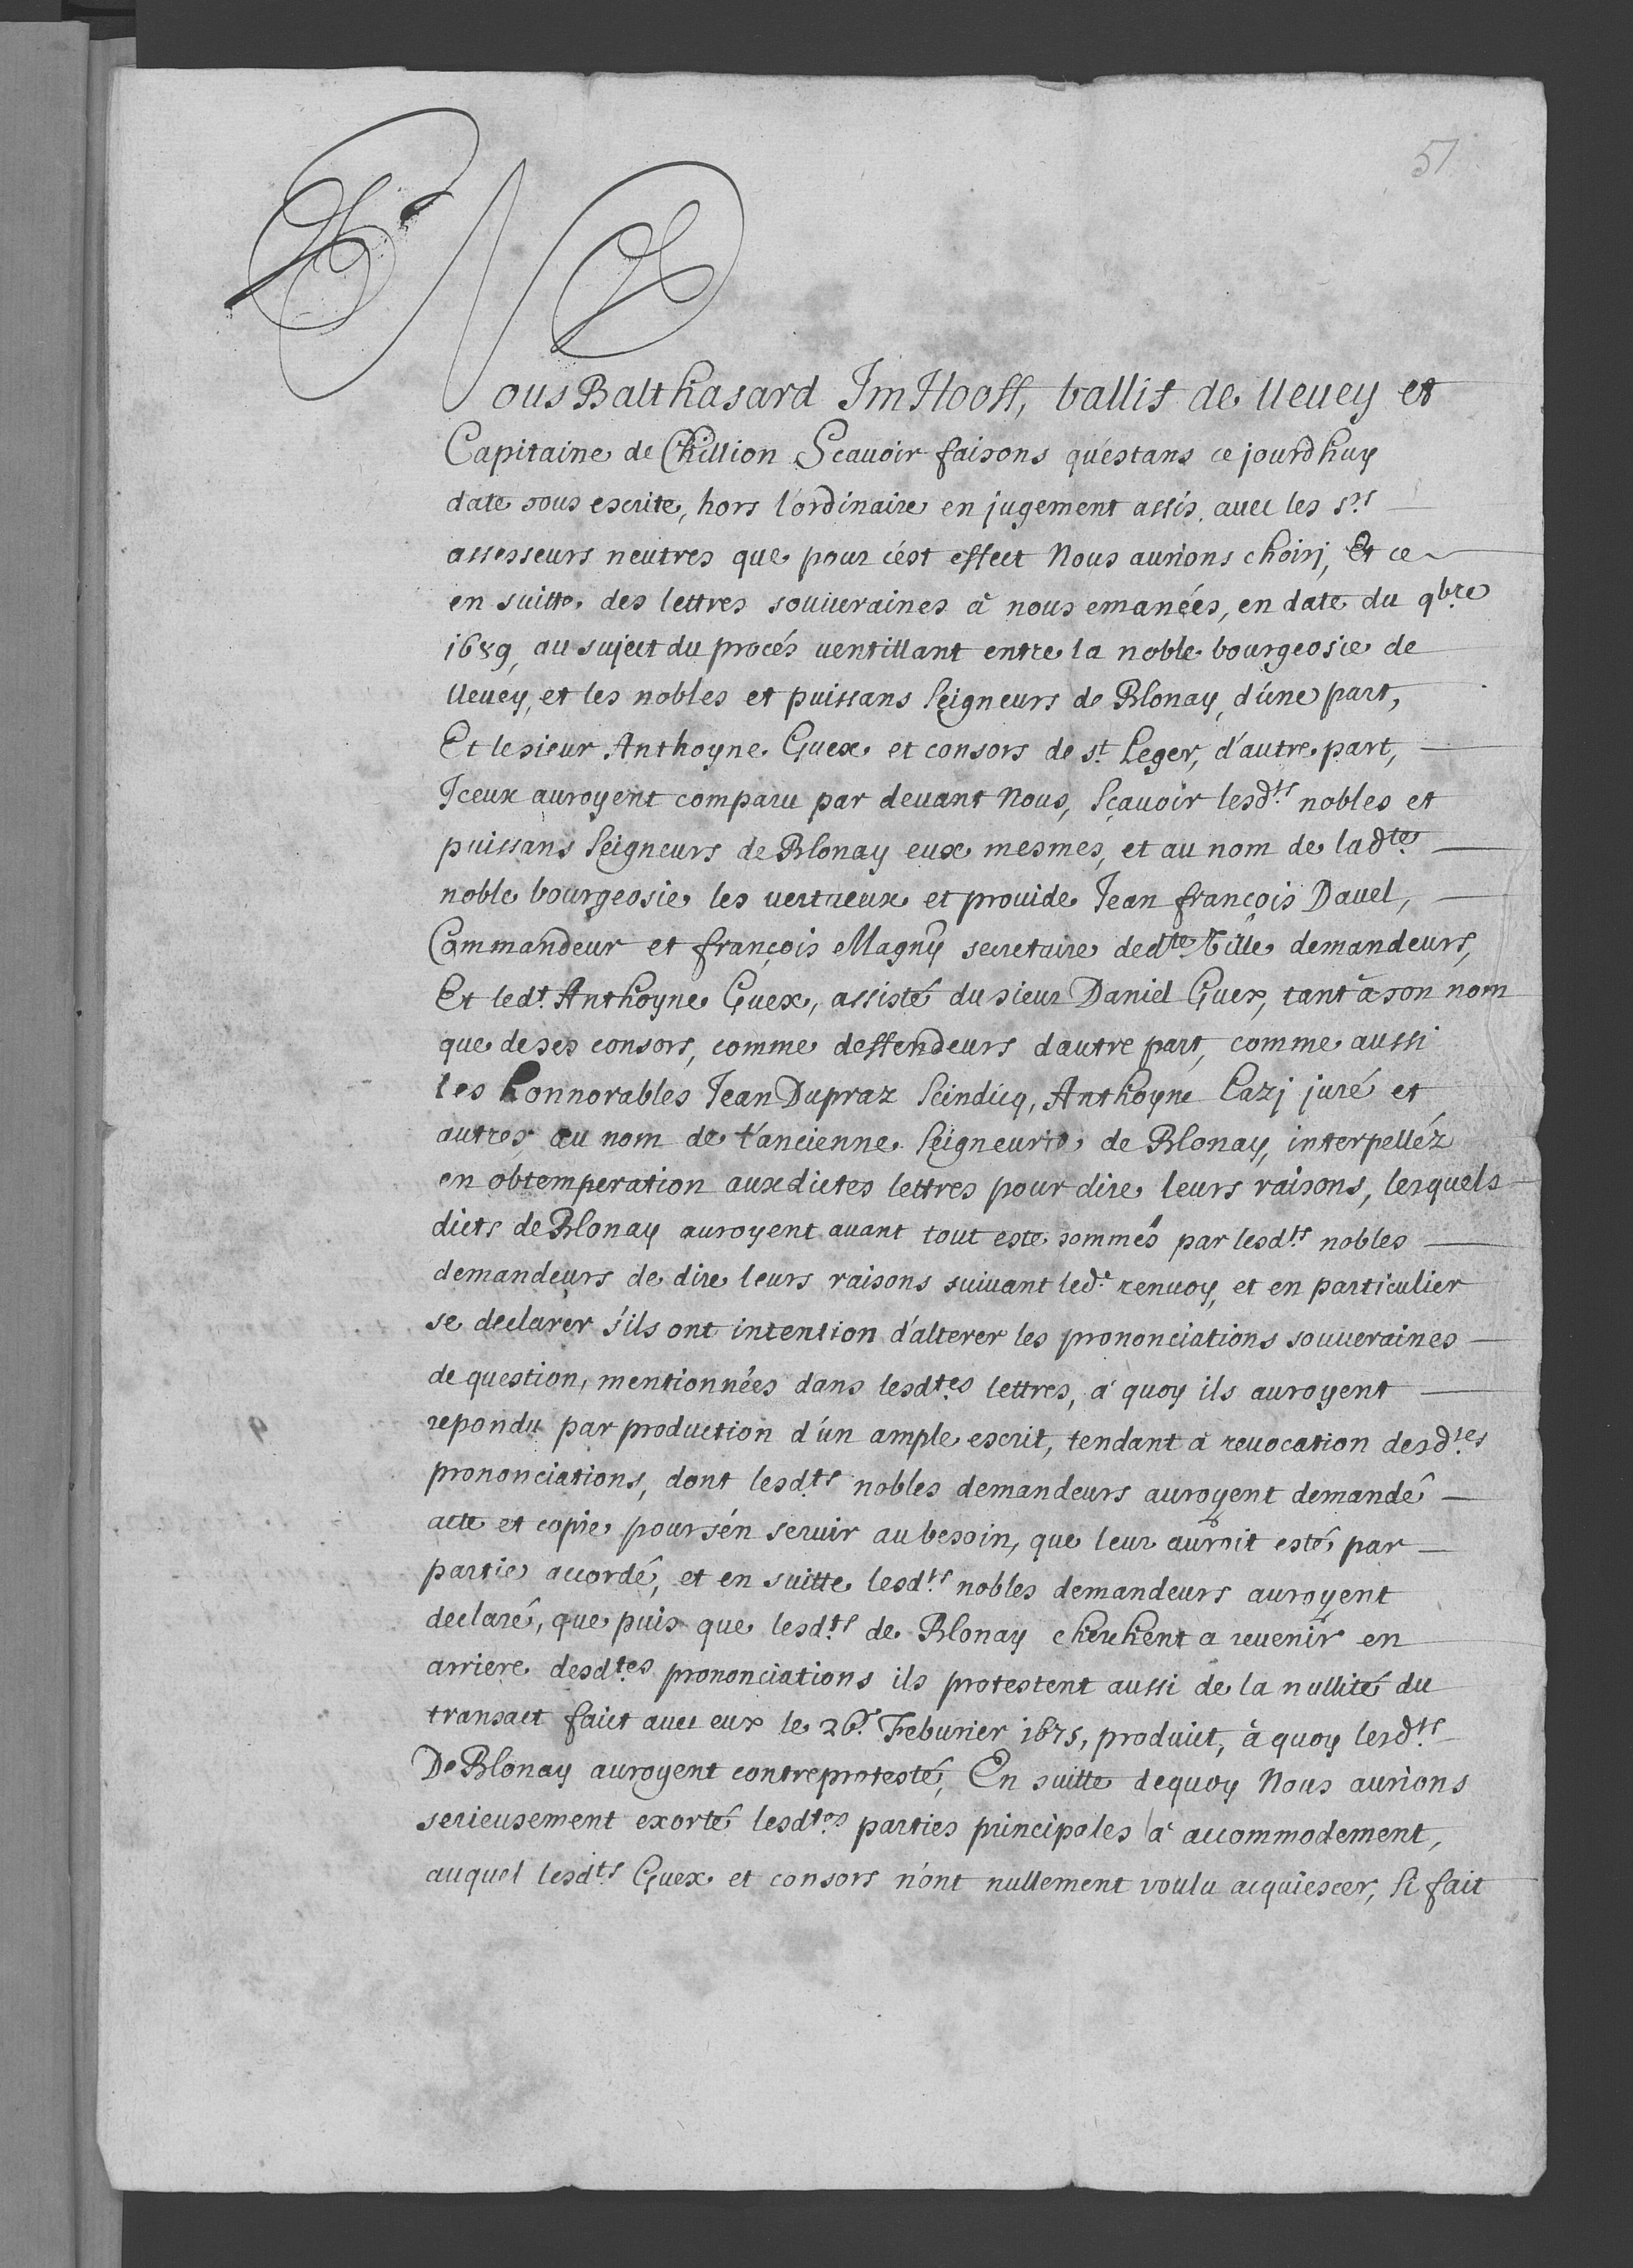 51
Nous Balthasard ImHooff, ballif de Veuey et
Capitaine de Chillion Scauoir faisons qu'estans ce jourdhuy
date sous escrite, hors l'ordinaire en jugement assis auec les s.rs
assesseurs neutres que pour c'est effect Nous aurions choisi, Et ce
en suitte des lettres souueraines à nous emanées, en date du 9bre
1689, au sujeet du procés uentillant entre la noble bourgeosie de
Veuey, et les nobles et puissans Seigneurs de Blonay, d'une part,
Et le sieur Anthoyne Guex et consors de s.t Leger, d'autre part,
Iceux auroyent comparu par deuant Nous, Sçauoir lesd.ts nobles et
puissans Seigneurs de Blonay eux mesmes, et au nom de lad.te
noble bourgeosie les uertueux et prouide Jean françois Dauel,
Commandeur et françois Magny secretaire ded.te Ville demandeurs,
Et led.t Anthoyne Guex, assisté du sieur Daniel Guex, tant à son nom
que de ses consors, comme deffendeurs dautre part, comme aussi
les honnorables Jean Dupraz Scindicq, Anthoyne Cazj juré et
autres au nom de l'ancienne Seigneurie de Blonay, interpelléz
en obtemperation auxdictes lettres pour dire leurs raisons, lesquels
dicts de Blonay auroyent auant tout esté sommés par lesd.ts nobles
demandeurs de dire leurs raisons suiuant led.t renuoy, et en particulier
se declarer s'ils ont intention d'alterer les prononciations souueraines
de question, mentionnées dans lesd.tes lettres, à quoy ils auroyent
repondu par production d'un ample escrit, tendant à reuocation desd.tes
prononciations, dont lesd.ts nobles demandeurs auroyent demandé
acte et copie pour s'en seruir au besoin, que leur auroit esté par
partie accordé, et en suitte lesd.ts nobles demandeurs auroyent
declaré, que puis que lesd.ts de Blonay cherchent a reuenir en
arriere desd.tes prononciations ils protestent aussi de la nullité du
transact faict auec eux le 26.e Feburier 1675, produict, à quoy lesd.ts
De Blonay auroyent contreprotesté, En suitte dequoy Nous aurions
serieusement exorté lesd.tes parties principales à accommodement,
auquel lesd.ts Guex et consors n'ont nullement voulu acquiescer, Si fait